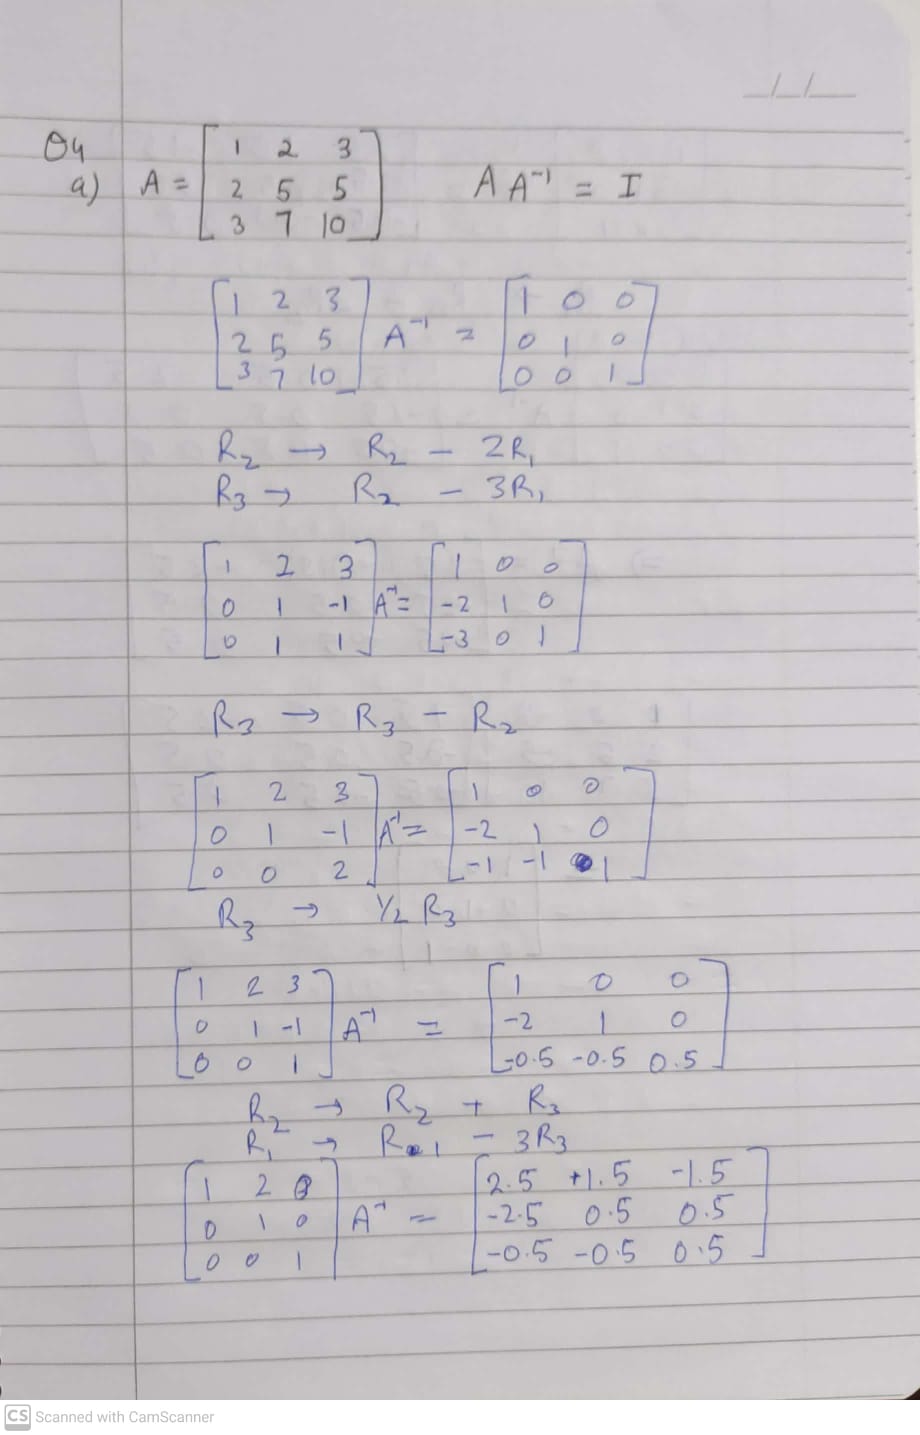 _/_/_
Q4
a) A = [ 1 2 3
2 5 5
3 7 10 ] A A⁻¹ = I
[ 1 2 3
2 5 5
3 7 10 ] A⁻¹ = [ 1 0 0
0 1 0
0 0 1 ]
R₂ → R₂ - 2R₁
R₃ → R₂ - 3R₁
[ 1 2 3
0 1 -1
0 1 1 ] A⁻¹ = [ 1 0 0
-2 1 0
-3 0 1 ]
R₃ → R₃ - R₂
[ 1 2 3
0 1 -1
0 0 2 ] A⁻¹ = [ 1 0 0
-2 1 0
-1 -1 1 ]
R₃ → 1/2 R₃
[ 1 2 3
0 1 -1
0 0 1 ] A⁻¹ = [ 1 0 0
-2 1 0
-0.5 -0.5 0.5 ]
R₂ → R₂ + R₃
R₁ → R₁ - 3R₃
[ 1 2 0
0 1 0
0 0 1 ] A⁻¹ = [ 2.5 +1.5 -1.5
-2.5 0.5 0.5
-0.5 -0.5 0.5 ]
CS Scanned with CamScanner